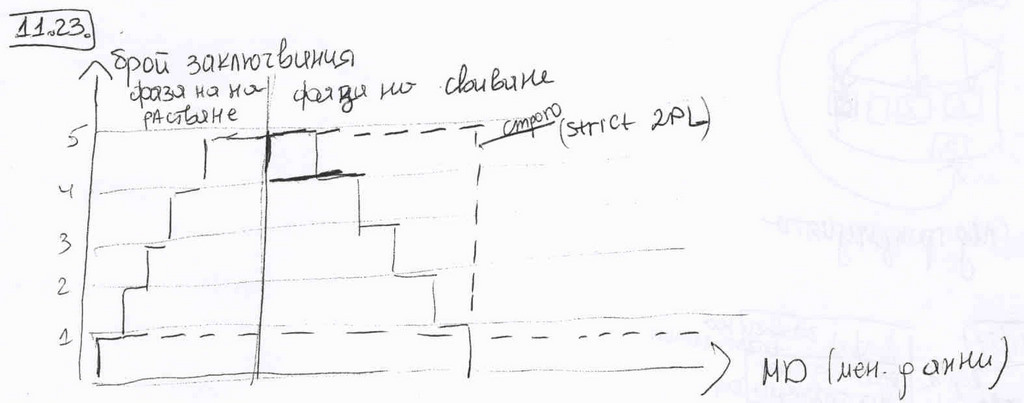 11.23.
брой заключвиния
фаза на на
растване
фаза но свиване
строго (strict 2PL)
5
4
3
2
1
MD (мен. данни)